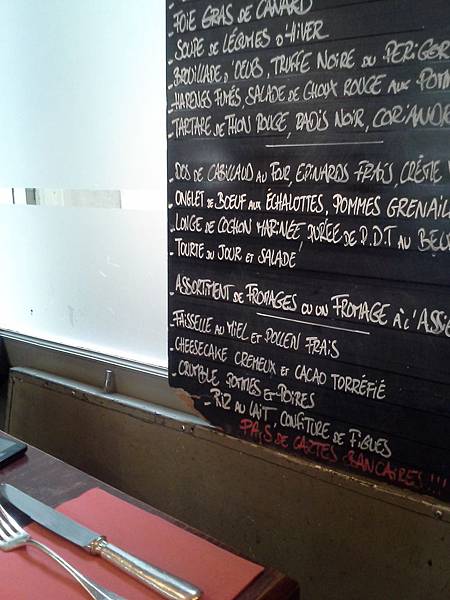 - FOIE GRAS DE CANARD
- SOUPE DE LÉGUMES D'HIVER
- BROUILLADE D'OEUFS, TRUFFE NOIRE DU PERIGOR
- HARENGS FUMÉS, SALADE DE CHOUX ROUGE AUX POMM
- TARTARE DE THON ROUGE, RADIS NOIR, CORIANDR
- DOS DE CABILLAUD AU FOUR, EPINARDS FRAIS, CRÈME
- ONGLET DE BOEUF AUX ÉCHALOTTES, POMMES GRENAIL
- LONGE DE COCHON MARINÉE, PURÉE DE P.D.T AU BEU
- TOURTE DU JOUR ET SALADE
- ASSORTIMENT DE FROMAGES OU UN FROMAGE À L'ASSIE
- FAISSELLE AU MIEL ET POLLEN FRAIS
- CHEESECAKE CREMEUX ET CACAO TORRÉFIÉ
- CRUMBLE POMMES ET POIRES
- RIZ AU LAIT CONFITURE DE FIGUES
PAS DE CARTES BANCAIRES!!!